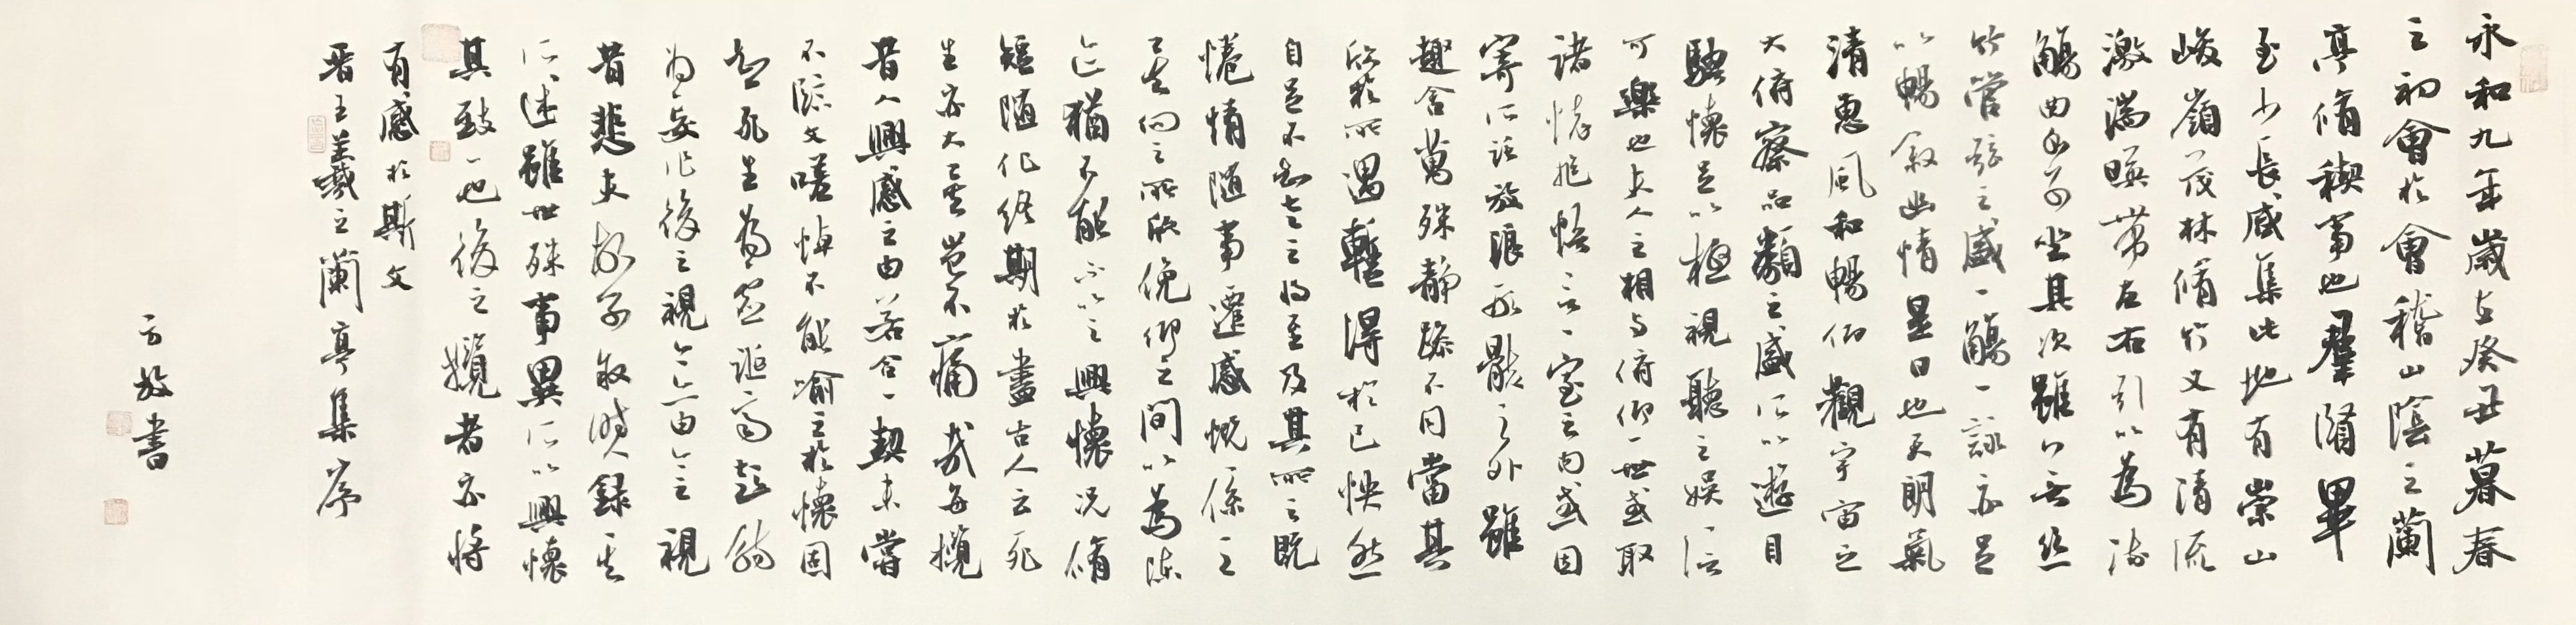 永和九年歲在癸丑暮春
之初會於會稽山陰之蘭
亭脩禊事也羣賢畢
至少長咸集此地有崇山
峻嶺茂林脩竹又有清流
激湍暎帶左右引以為流
觴曲水列坐其次雖無絲
竹管弦之盛一觴一詠亦足
以暢叙幽情是日也天朗氣
清惠風和暢仰觀宇宙之
大俯察品類之盛所以遊目
騁懷足以極視聽之娛信
可樂也夫人之相與俯仰一世或取
諸懷抱悟言一室之內或因
寄所託放浪形骸之外雖
趣舍萬殊靜躁不同當其
欣於所遇暫得於己怏然
自足不知老之將至及其所之既
惓情隨事遷感慨係之
矣向之所欣俛仰之間以為陳
迹猶不能不以之興懷況脩
短隨化終期於盡古人云死
生亦大矣豈不痛哉每攬
昔人興感之由若合一契未嘗
不臨文嗟悼不能喻之於懷固
知死生為虛誕齊彭殤
為妄作後之視今亦由今之視
昔悲夫故列叙時人錄其
所述雖世殊事異所以興懷
其致一也後之攬者亦將
有感於斯文
晉王羲之蘭亭集序
方放書